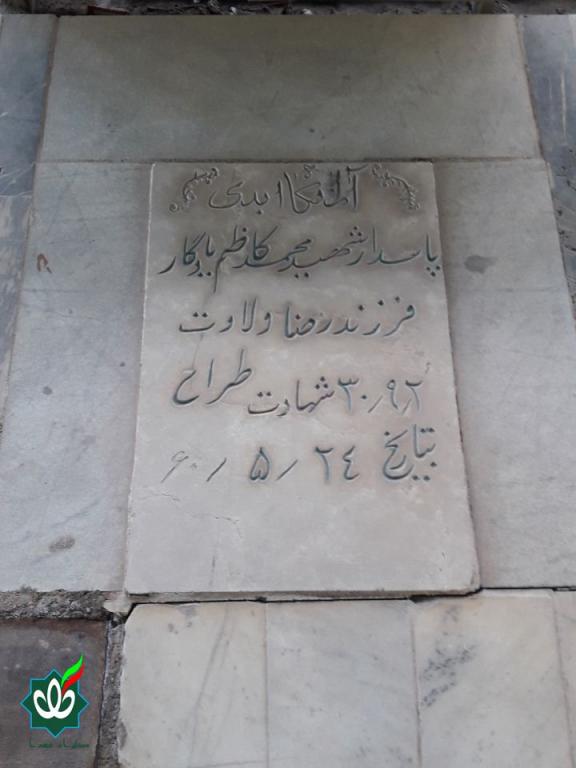 آرامگاه ابدی
پاسدار شهید محمد کاظم یادگار
فرزند رضا ولادت
۳۰/۹/۲ شهادت طراح
بتاریخ ۲۴/۵/۶۰